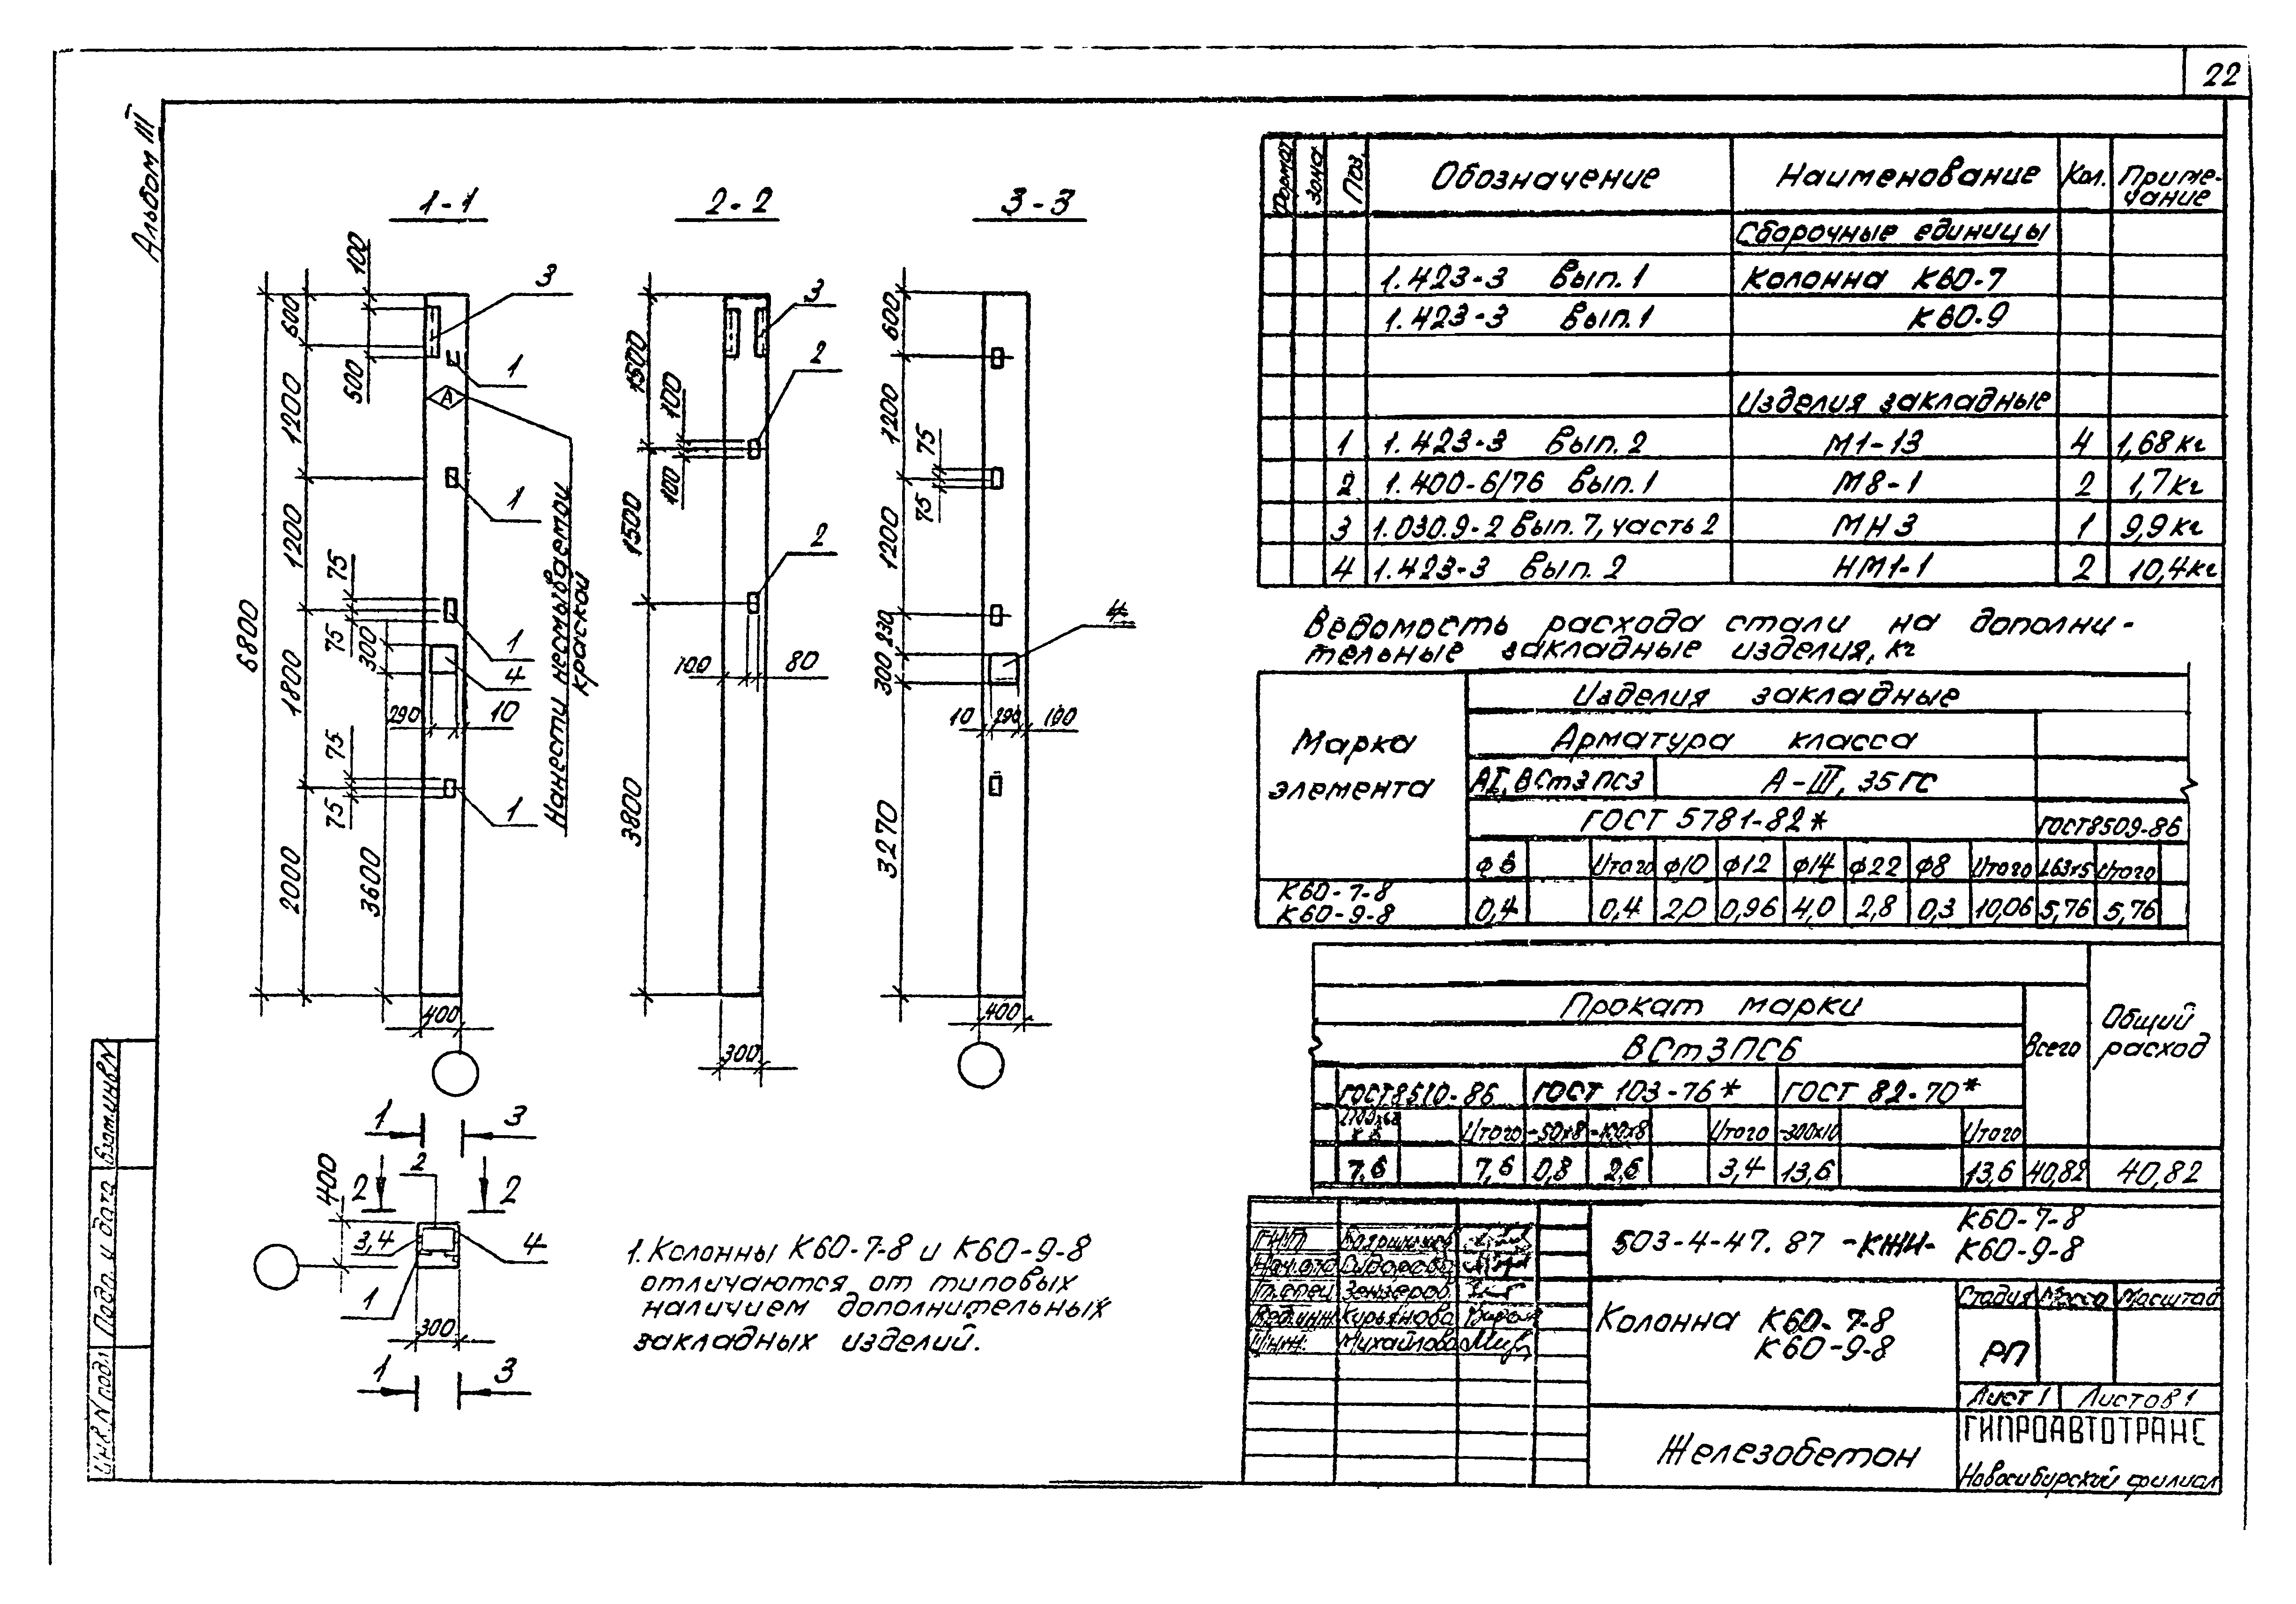 22
Альбом III
1-1
2-2
3-3
100
600
500
1200
1200
1800
2000
6800
75
75
300
290
10
75
75
3600
400
3
1
А
1
1
4
1
Нанести несмываемой
краской
1500
1500
3800
100
100
100
80
300
3
2
2
600
1200
1200
75
75
230
300
3270
10
290
100
400
4
1
3
2
2
2
400
3,4
4
1
300
1
3
1. Колонны К60-7-8 и К60-9-8
отличаются от типовых
наличием дополнительных
закладных изделий.
Формат Зона Поз. Обозначение Наименование Кол. Приме-
чание
Сборочные единицы
1.423-3 Вып.1 Колонна К60-7
1.423-3 Вып.1 К60-9
Изделия закладные
1 1.423-3 Вып.2 М1-13 4 1,68кг
2 1.400-6/76 Вып.1 М8-1 2 1,7кг
3 1.030.9-2 Вып.7, часть 2 МН3 1 9,9кг
4 1.423-3 Вып.2 НМ1-1 2 10,4кг
Ведомость расхода стали на дополни-
тельные закладные изделия, кг
Марка
элемента
Изделия закладные
Арматура класса
АI, ВСт3пс3 А-III, 35ГС
ГОСТ 5781-82* ГОСТ8509-86
ф6 Итого ф10 ф12 ф14 ф22 ф8 Итого L63х5 Итого
К60-7-8
К60-9-8
0,4 0,4 2,0 0,96 4,0 2,8 0,3 10,06 5,76 5,76
Прокат марки
ВСт3ПС6
Всего
Общий
расход
ГОСТ8510-86 ГОСТ 103-76* ГОСТ 82-70*
Итого -50х8 -100х8 Итого -300х10 Итого
7,6 7,6 0,8 2,6 3,4 13,6 13,6 40,82 40,82
503-4-47.87 -КЖИ- К60-7-8
К60-9-8
ГИП
Нач.отд Сидоров
Гл.спец Зензеров
Вед.инж. Курьянова
Инж. Михайлова
Колонна К60-7-8
К60-9-8
Стадия Масса Масштаб
РП
Лист 1 Листов 1
Железобетон
ГИПРОАВТОТРАНС
Новосибирский филиал
Взам.инв.N
Подп. и дата
Инв.N подл.